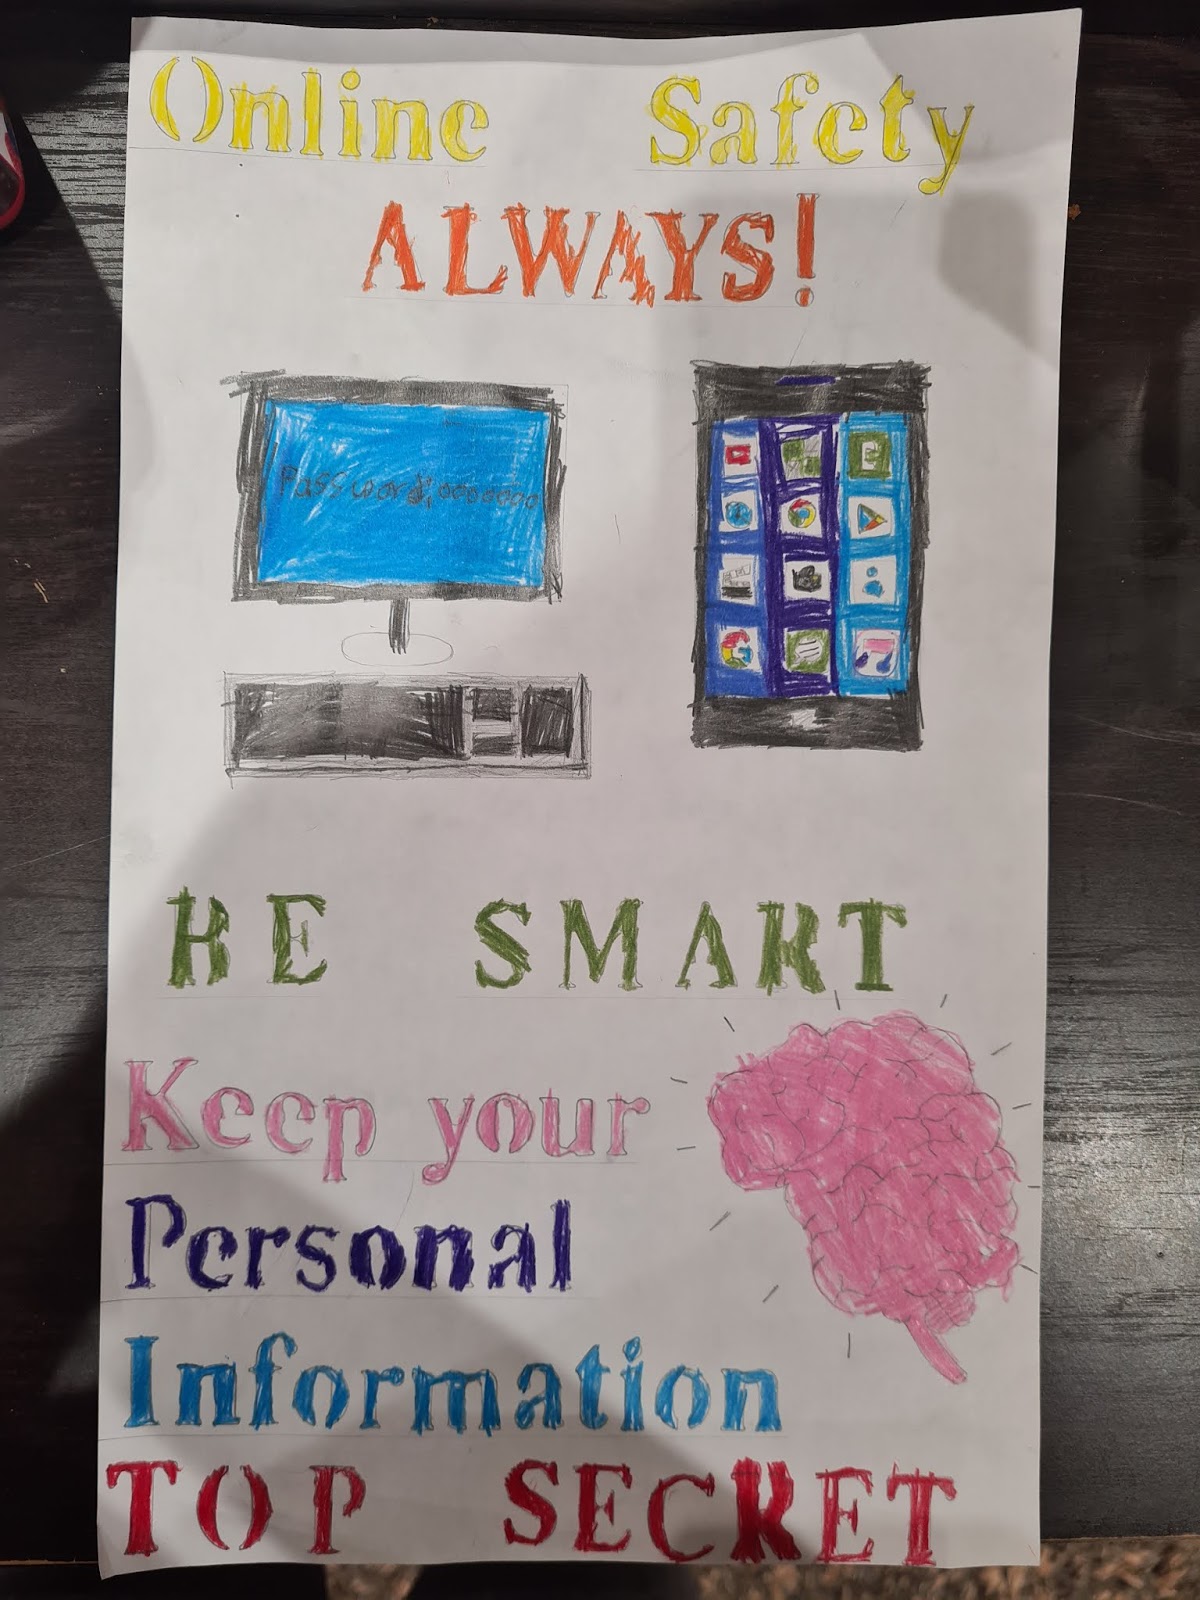 Online Safety
ALWAYS!
Password:ooooooo
BE SMART
Keep your
Personal
Information
TOP SECRET